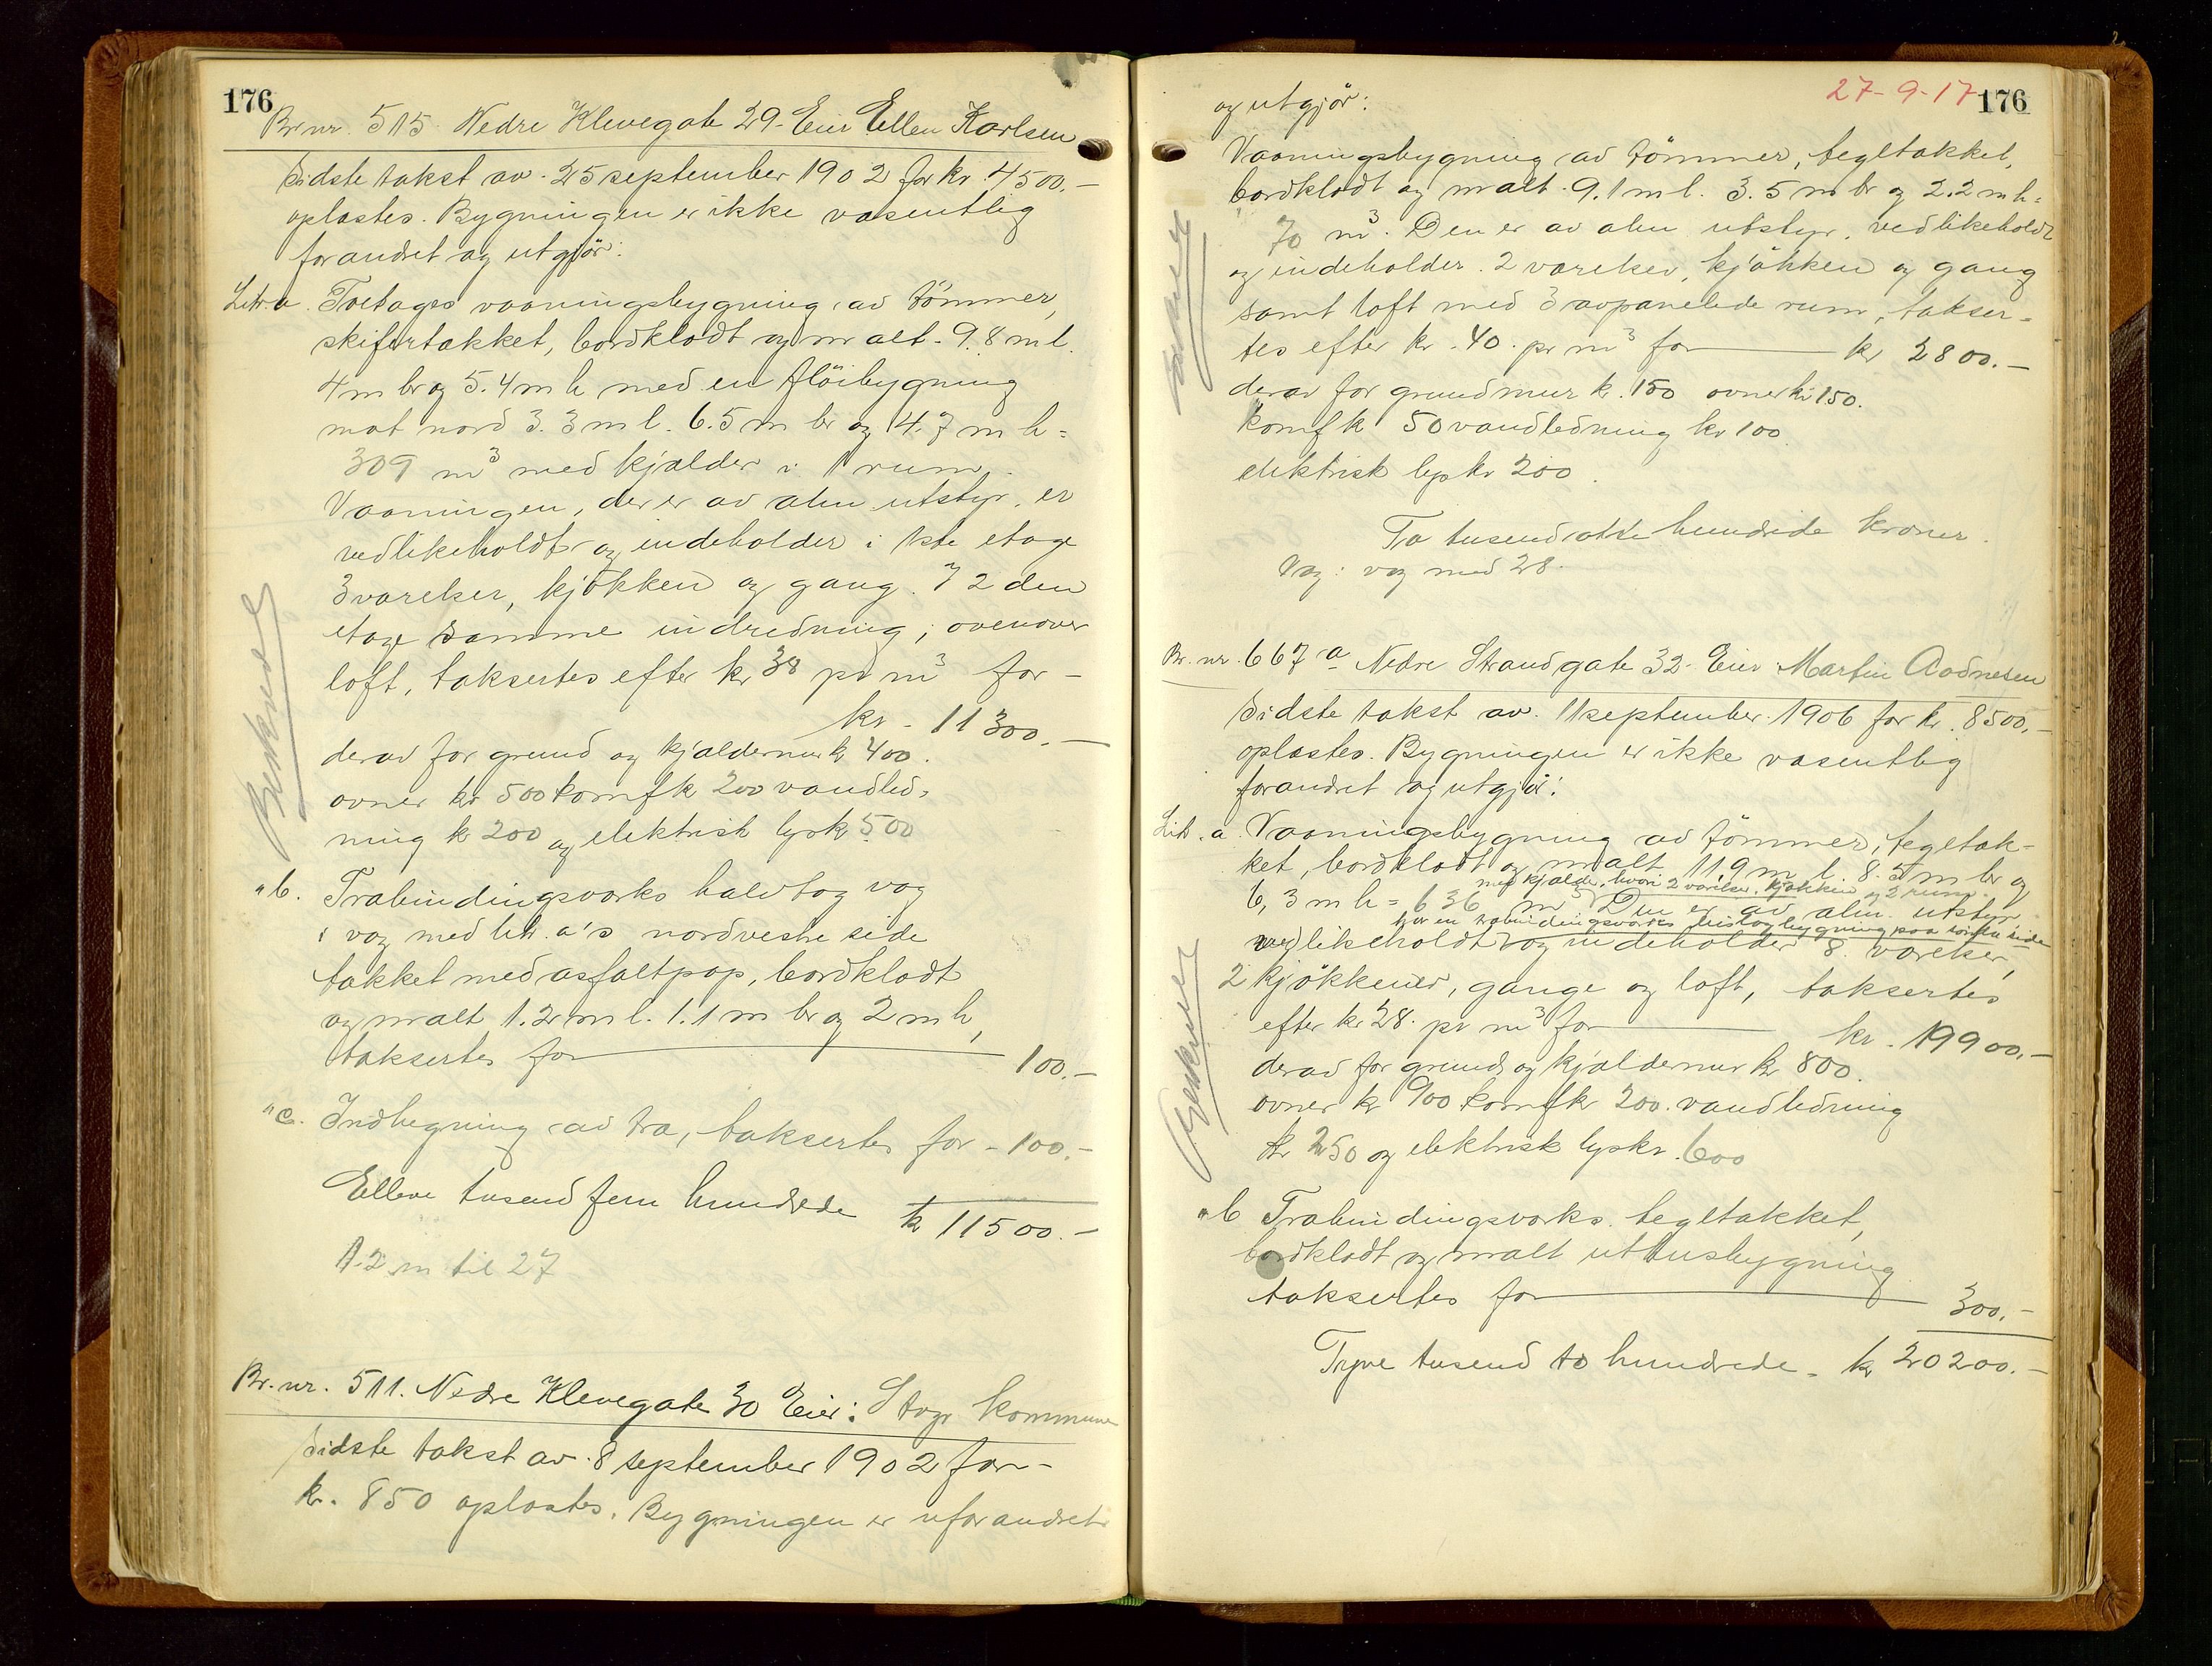 176
Br. nr. 515 Nedre Klevegate 29. Eier Ellen Karlsen
Sidste takst av 25 september 1902 for kr. 4500.-
oplæstes. Bygningen er ikke væsentlig
forandret og utgjör:
Litr. a. Toetages vaaningsbygning av tömmer,
skifertækket, bordklædt og malt - 9.8 m l.
4 m br og 5.4 m h med en flöibygning
mot nord 3.3 m l. 6.5 m br og 4.7 m h =
309 m³ med kjælder i 1 rum.
Vaaningen, der er av alm utstyr, er
vedlikeholdt og indeholder i 1ste etage
3 værelser, kjökken og gang. I 2den
etage samme indredning; ovenover
loft, taksertes efter kr 38 pr m³ for -
kr - 11300.-
derav for grund og kjældermur kr 400.
ovner kr 500 komf kr 200 vandled=
ning kr 200 og elektrisk lys kr 500
" b. Træbindingsværks halvtag væg
i væg med litr. a's nordvestre side
tækket med asfaltpap, bordklædt
og malt 1.2 m l. 1.1 m br og 2 m h,
taksertes for 100.-
" c. Indhegning av træ, taksertes for - 100.-
Elleve tusend fem hundrede kr 11500.-
1.2 m til 27
Br. nr. 511. Nedre Klevegate 30 Eier: Stvgr kommune
Sidste takst av 8 september 1902 for -
kr. 850 oplæstes. Bygningen er uforandret
27-9-17 176
og utgjör:
Vaaningsbygning av tömmer, tegltækket,
bordklædt og malt - 9.1 m l. 3.5 m br og 2.2 m h =
70 m³. Den er av alm utstyr, vedlikeholdt
og indeholder 2 værelser, kjökken og gang
samt loft med 3 avpanelede rum, takser=
tes efter kr. 40. pr m³ for kr 2800.-
derav for grundmur kr. 150 ovner kr 150.
komf kr 50 vandledning kr 100.
elektrisk lys kr 200.
To tusend otte hundrede kroner.
Væg i væg med 28.
Br. nr. 667 a Nedre Strandgate 32. Eier Martin Aadnesen
Sidste takst av 11 september 1906 for kr. 8500.-
oplæstes. Bygningen er ikke væsentlig
forandret og utgjör:
Litr. a. Vaaningsbygning av tömmer, tegltæk-
ket, bordklædt og malt 11.9 m l. 8.5 m br og
med kjælder, hvori 2 værelser, kjökken og 2 rum.
6,3 m h = 636 m³ Den er av alm. utstyr
har en træbindingsværks bygning paa side
vedlikeholdt og indeholder 8 værelser,
2 kjökkener, gange og loft, taksertes
efter kr 28. pr m³ for kr. 19900.-
derav for grund og kjældermur kr 800.
ovner kr 900 komf kr 200. vandledning
kr 250 og elektrisk lys kr. 600
" b Træbindingsværks. tegltækket,
bordklædt og malt uthusbygning
taksertes for 300.-
Tyve tusend to hundrede - kr 20200.-